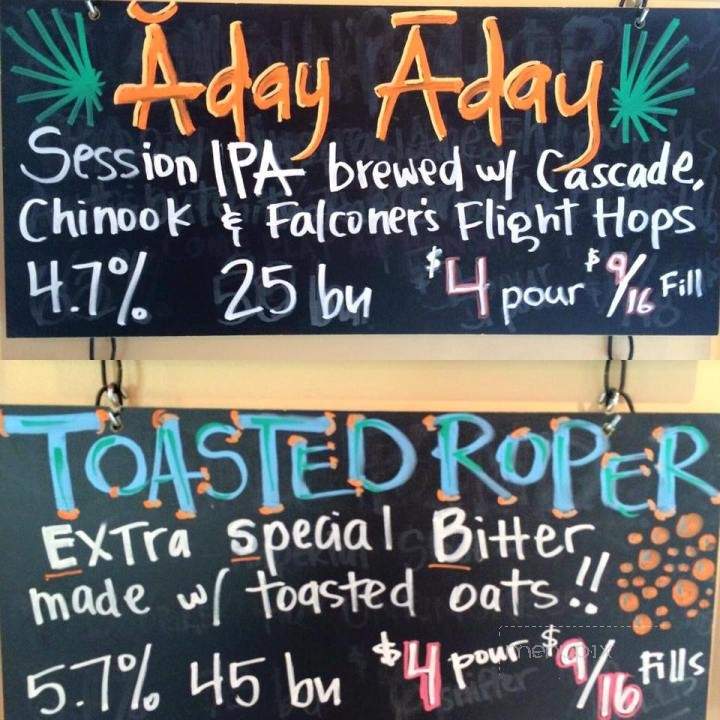 Ăday Āday
Session IPA brewed w/ Cascade,
Chinook & Falconer's Flight Hops
4.7% 25 bu $4 pour $9/16 Fill
TOASTED ROPER
EXTra special Bitter
made w/ toasted oats!!
5.7% 45 bu $4 pour $9/16 Fills
menupix